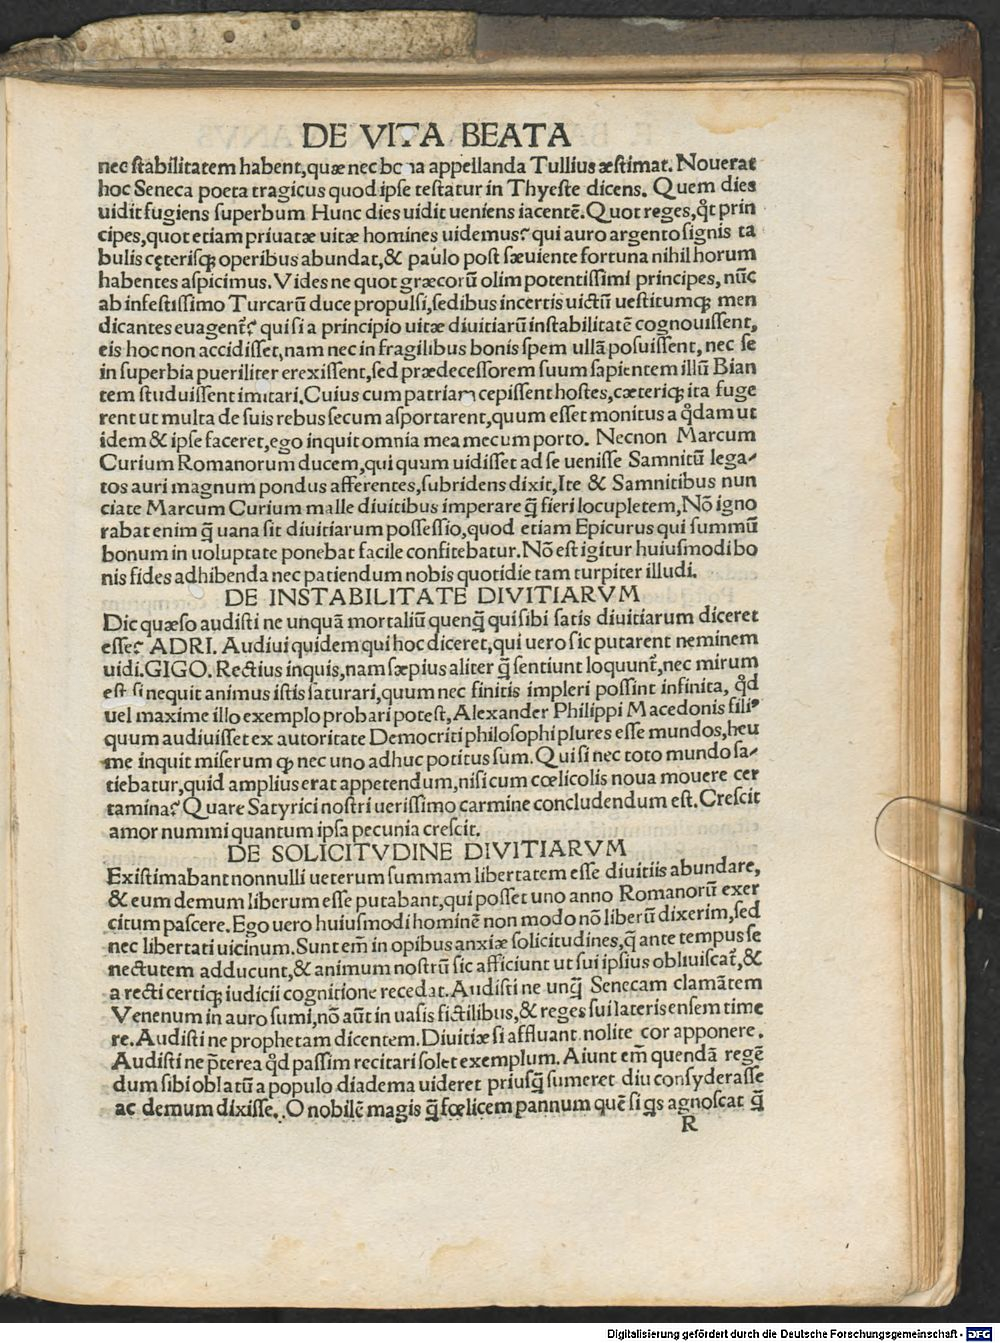 DE VITA BEATA
nec stabilitatem habent, quæ nec bona appellanda Tullius æstimat. Nouerat
hoc Seneca poeta tragicus quod ipse testatur in Thyeste dicens. Quem dies
uidit fugiens superbum Hunc dies uidit ueniens iacentē. Quot reges, q̊t prin
cipes, quot etiam priuatæ uitæ homines uidemus? qui auro argento signis ta
bulis cęterisq; operibus abundāt, & paulo post sæuiente fortuna nihil horum
habentes aspicimus. Vides ne quot græcorū olim potentissimi principes, nūc
ab infestissimo Turcarū duce propulsi, sedibus incertis uictū uestitumq; men
dicantes euagent̃? qui si a principio uitæ diuitiarū instabilitatē cognouissent,
eis hoc non accidisset, nam nec in fragilibus bonis spem ullā posuissent, nec se
in superbia pueriliter erexissent, sed prædecessorem suum sapientem illū Bian
tem studuissent imitari. Cuius cum patriam cepissent hostes, cæteriq; ita fuge
rent ut multa de suis rebus secum asportarent, quum esset monitus a q̊dam ut
idem & ipse faceret, ego inquit omnia mea mecum porto. Necnon Marcum
Curium Romanorum ducem, qui quum uidisset ad se uenisse Samnitū lega-
tos auri magnum pondus afferentes, subridens dixit, Ite & Samnitibus nun
ciate Marcum Curium malle diuitibus imperare q̃ fieri locupletem, Nō igno
rabat enim q̃ uana sit diuitiarum possessio, quod etiam Epicurus qui summū
bonum in uoluptate ponebat facile confitebatur. Nō est igitur huiusmodi bo
nis fides adhibenda nec patiendum nobis quotidie tam turpiter illudi.
DE INSTABILITATE DIVITIARVM
Dic quæso audisti ne unquā mortaliū quenq̃ qui sibi satis diuitiarum diceret
esse? ADRI. Audiui quidem qui hoc diceret, qui uero sic putarent neminem
uidi. GIGO. Rectius inquis, nam sæpius aliter q̃ sentiunt loquunt̃, nec mirum
est si nequit animus istis saturari, quum nec finitis impleri possint infinita, q̊d
uel maxime illo exemplo probari potest, Alexander Philippi Macedonis filiꝰ
quum audiuisset ex autoritate Democriti philosophi plures esse mundos, heu
me inquit miserum q; nec uno adhuc potitus sum. Qui si nec toto mundo sa-
tiebatur, quid amplius erat appetendum, nisi cum cœlicolis noua mouere cer
tamina? Quare Satyrici nostri uerissimo carmine concludendum est. Crescit
amor nummi quantum ipsa pecunia crescit.
DE SOLICITVDINE DIVITIARVM
Existimabant nonnulli ueterum summam libertatem esse diuitiis abundare,
& eum demum liberum esse putabant, qui posset uno anno Romanorū exer
citum pascere. Ego uero huiusmodi hominē non modo nō liberū dixerim, sed
nec libertati uicinum. Sunt em̄ in opibus anxiæ solicitudines, q̄ ante tempus se
nectutem adducunt, & animum nostrū sic afficiunt ut sui ipsius obliuiscat̃, &
a recti certiq; iudicii cognitione recedat. Audisti ne unq̃ Senecam clamātem
Venenum in auro sumi, nō aūt in uasis fictilibus, & reges sui lateris ensem time
re. Audisti ne prophetam dicentem. Diuitiæ si affluant nolite cor apponere.
Audisti ne p̃terea q̊d passim recitari solet exemplum. Aiunt em̄ quendā regē
dum sibi oblatū a populo diadema uideret priusq̃ sumeret diu consyderasse
ac demum dixisse. O nobilē magis q̃ fœlicem pannum quē si q̊s agnoscat q̃
R
Digitalisierung gefördert durch die Deutsche Forschungsgemeinschaft - DFG